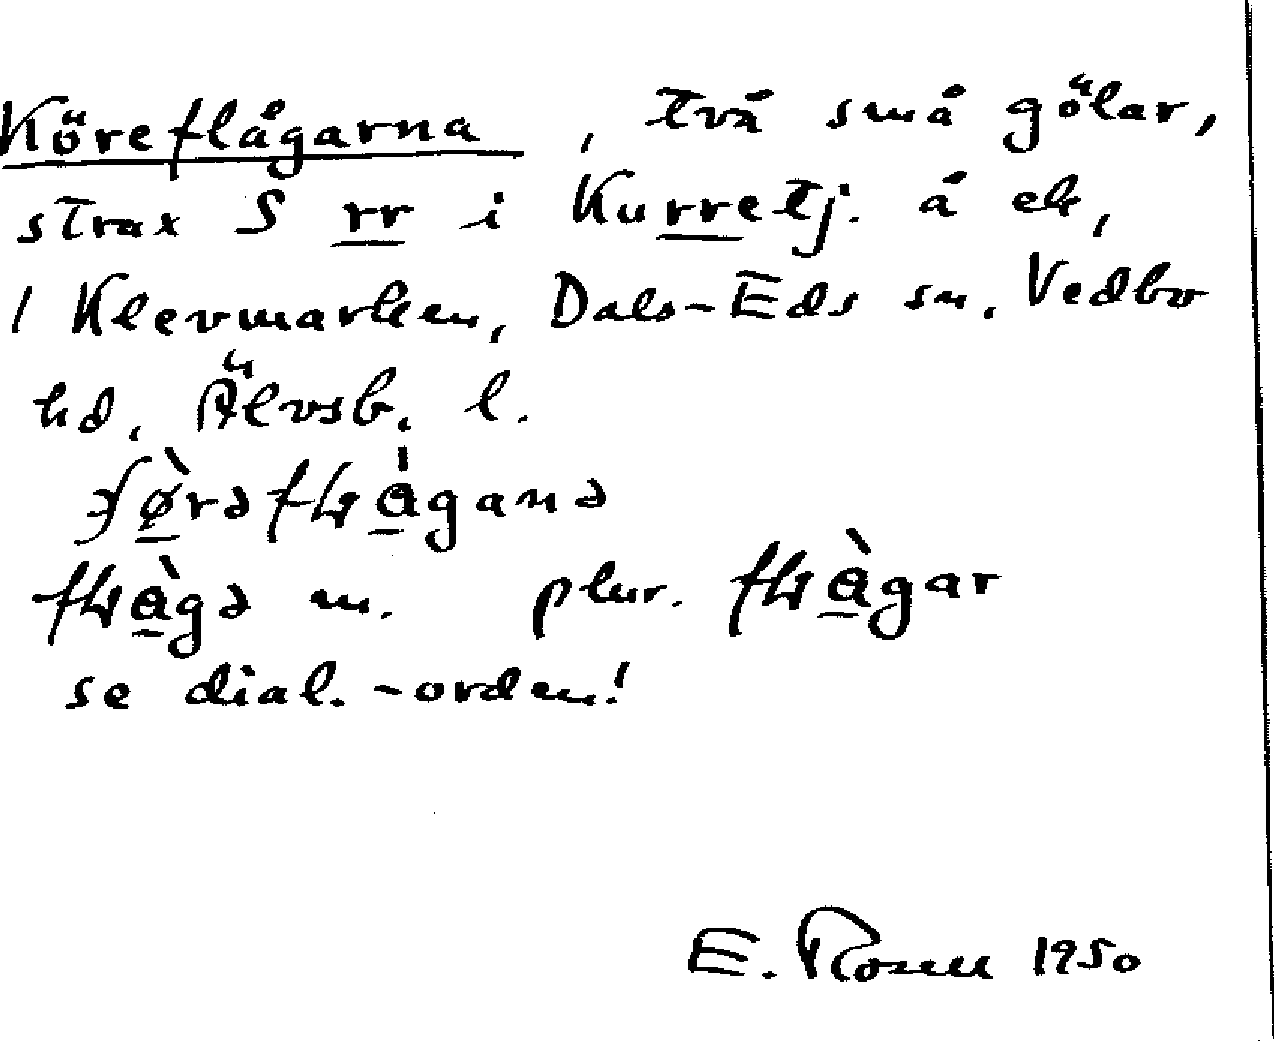 Köreflågarna, två små gölar,
strax S rr i Kurretj. å ek,
/ Klevmarken, Dals-Eds sn. Vedbo
hd, Älvsb. l.
flågar
se dial.-orden!
E. Rosell 1950